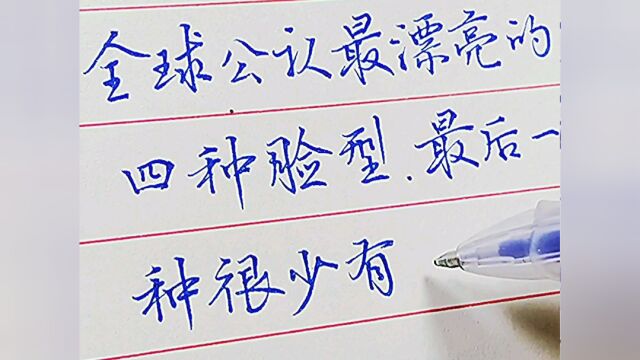 全球公认最漂亮的
四种脸型.最后一
种很少有